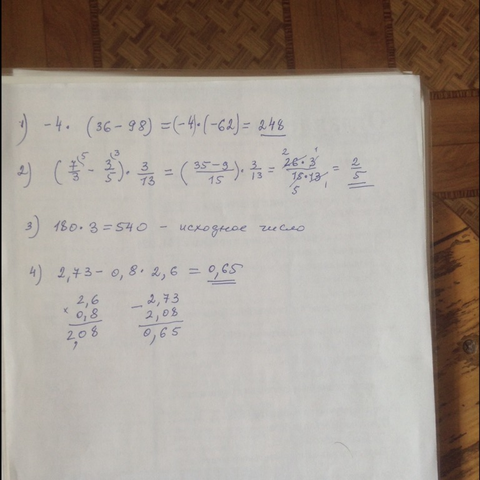 1) -4 · (36 - 98) = (-4) · (-62) = 248
2) (7/3 - 3/5) · 3/13 = (35-9/15) · 3/13 = 26·3/15·13 = 2/5
3) 180 · 3 = 540 - исходное число
4) 2,73 - 0,8 · 2,6 = 0,65
× 2,6 - 2,73
0,8 2,08
2,08 0,65